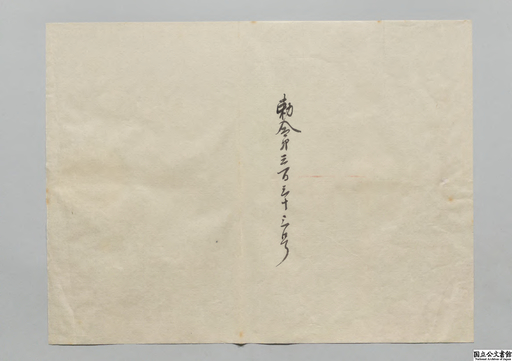 勅令第三百三十三号
国立公文書館
National Archives of Japan